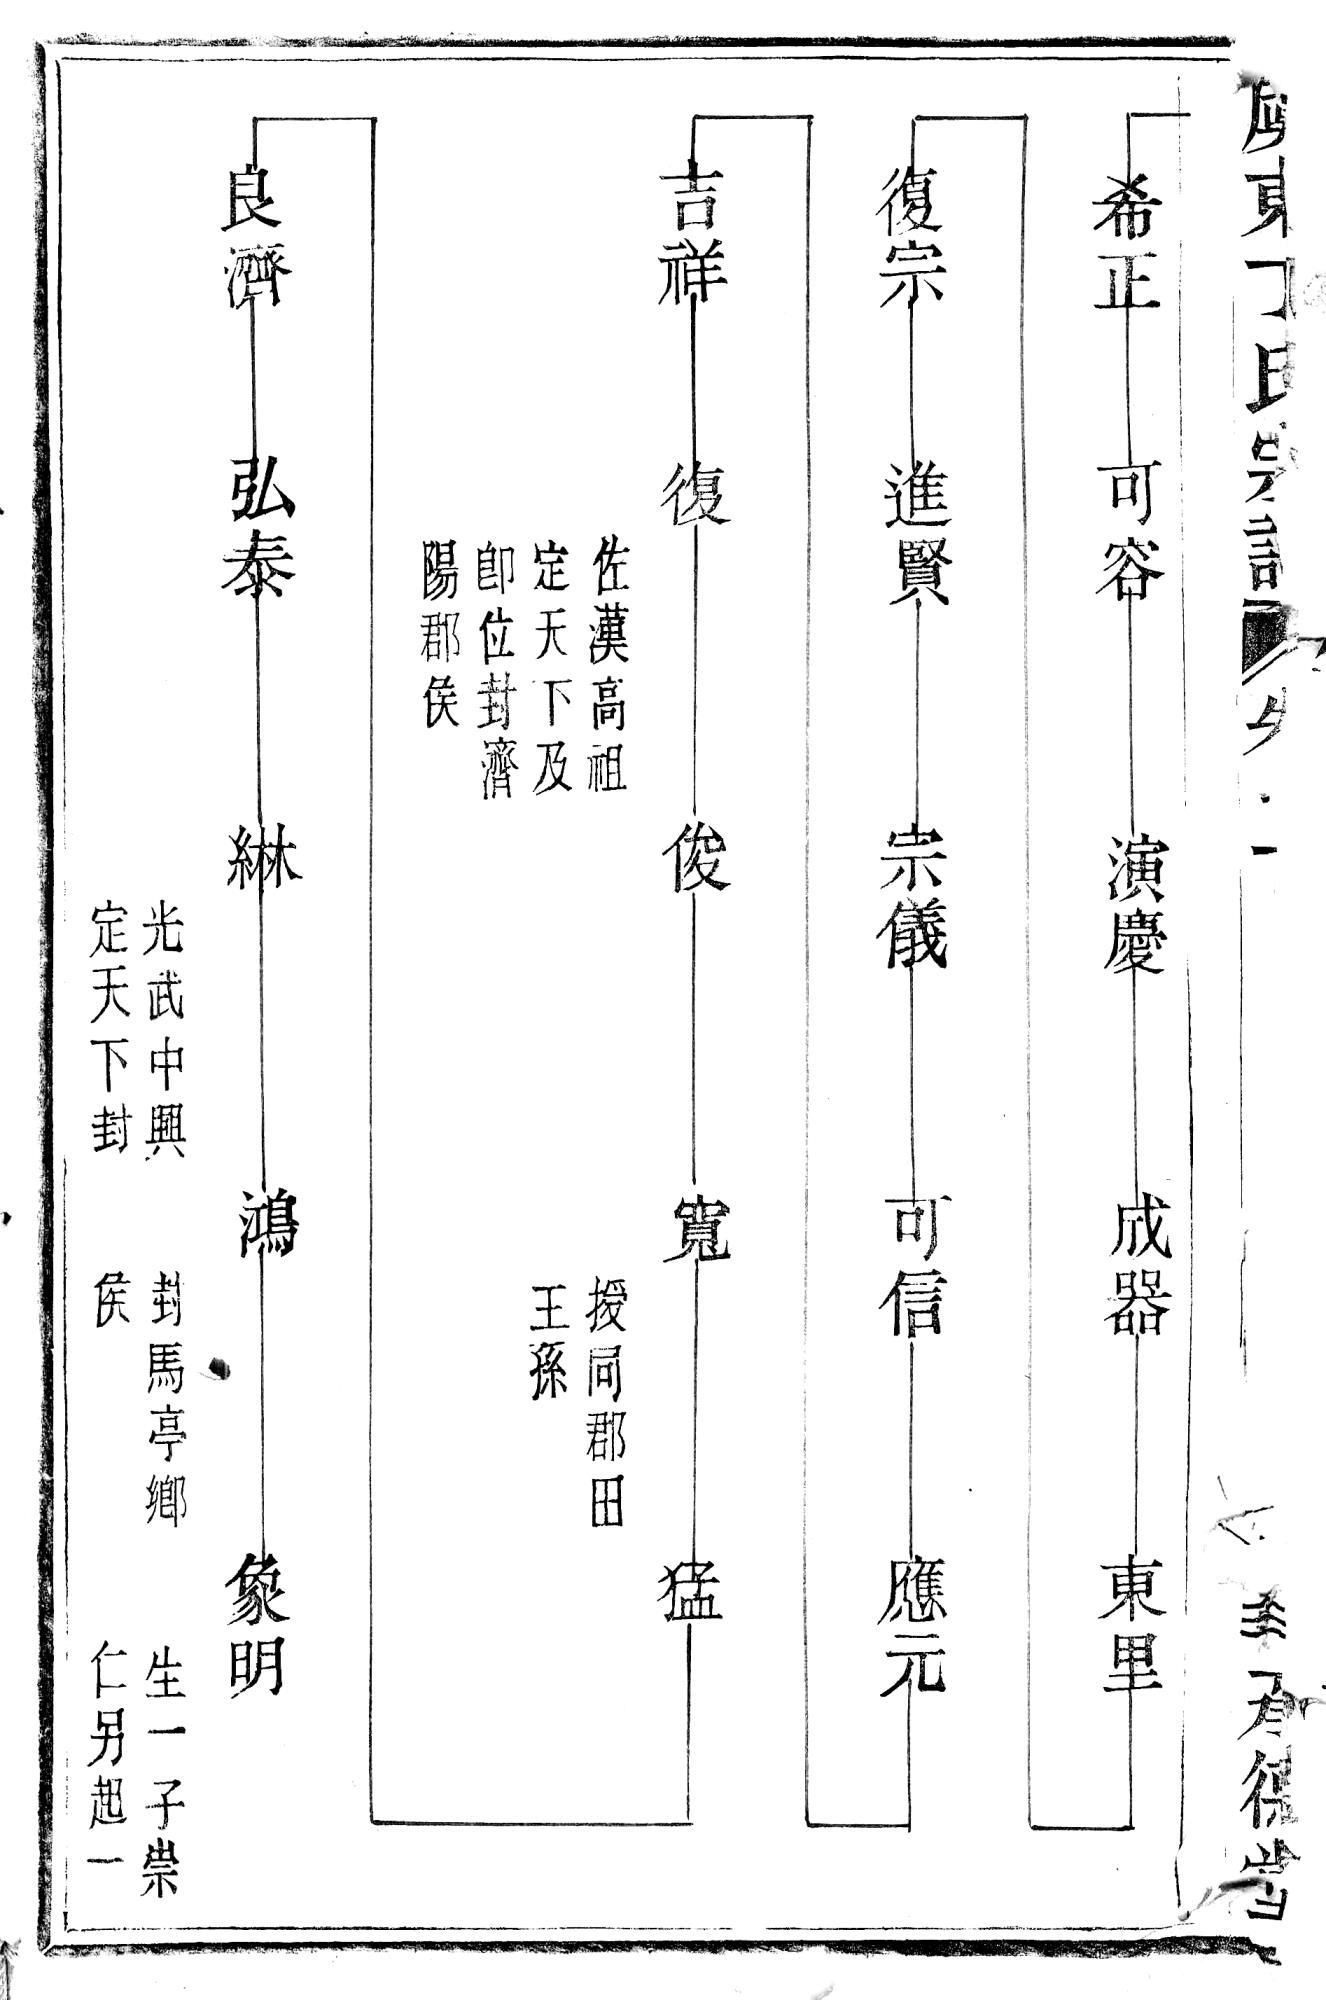 東丁氏宗譜
希正 可容 演慶 成器 東里
復宗 進賢 宗儀 可信 應元
吉祥 復 俊 寬 猛
佐漢高祖
定天下及
卽位封濟
陽郡侯
授同郡田
王孫
良濟 弘泰 綝 鴻 象明
光武中興
定天下封
封馬亭鄉
侯
生一子崇
仁另起一